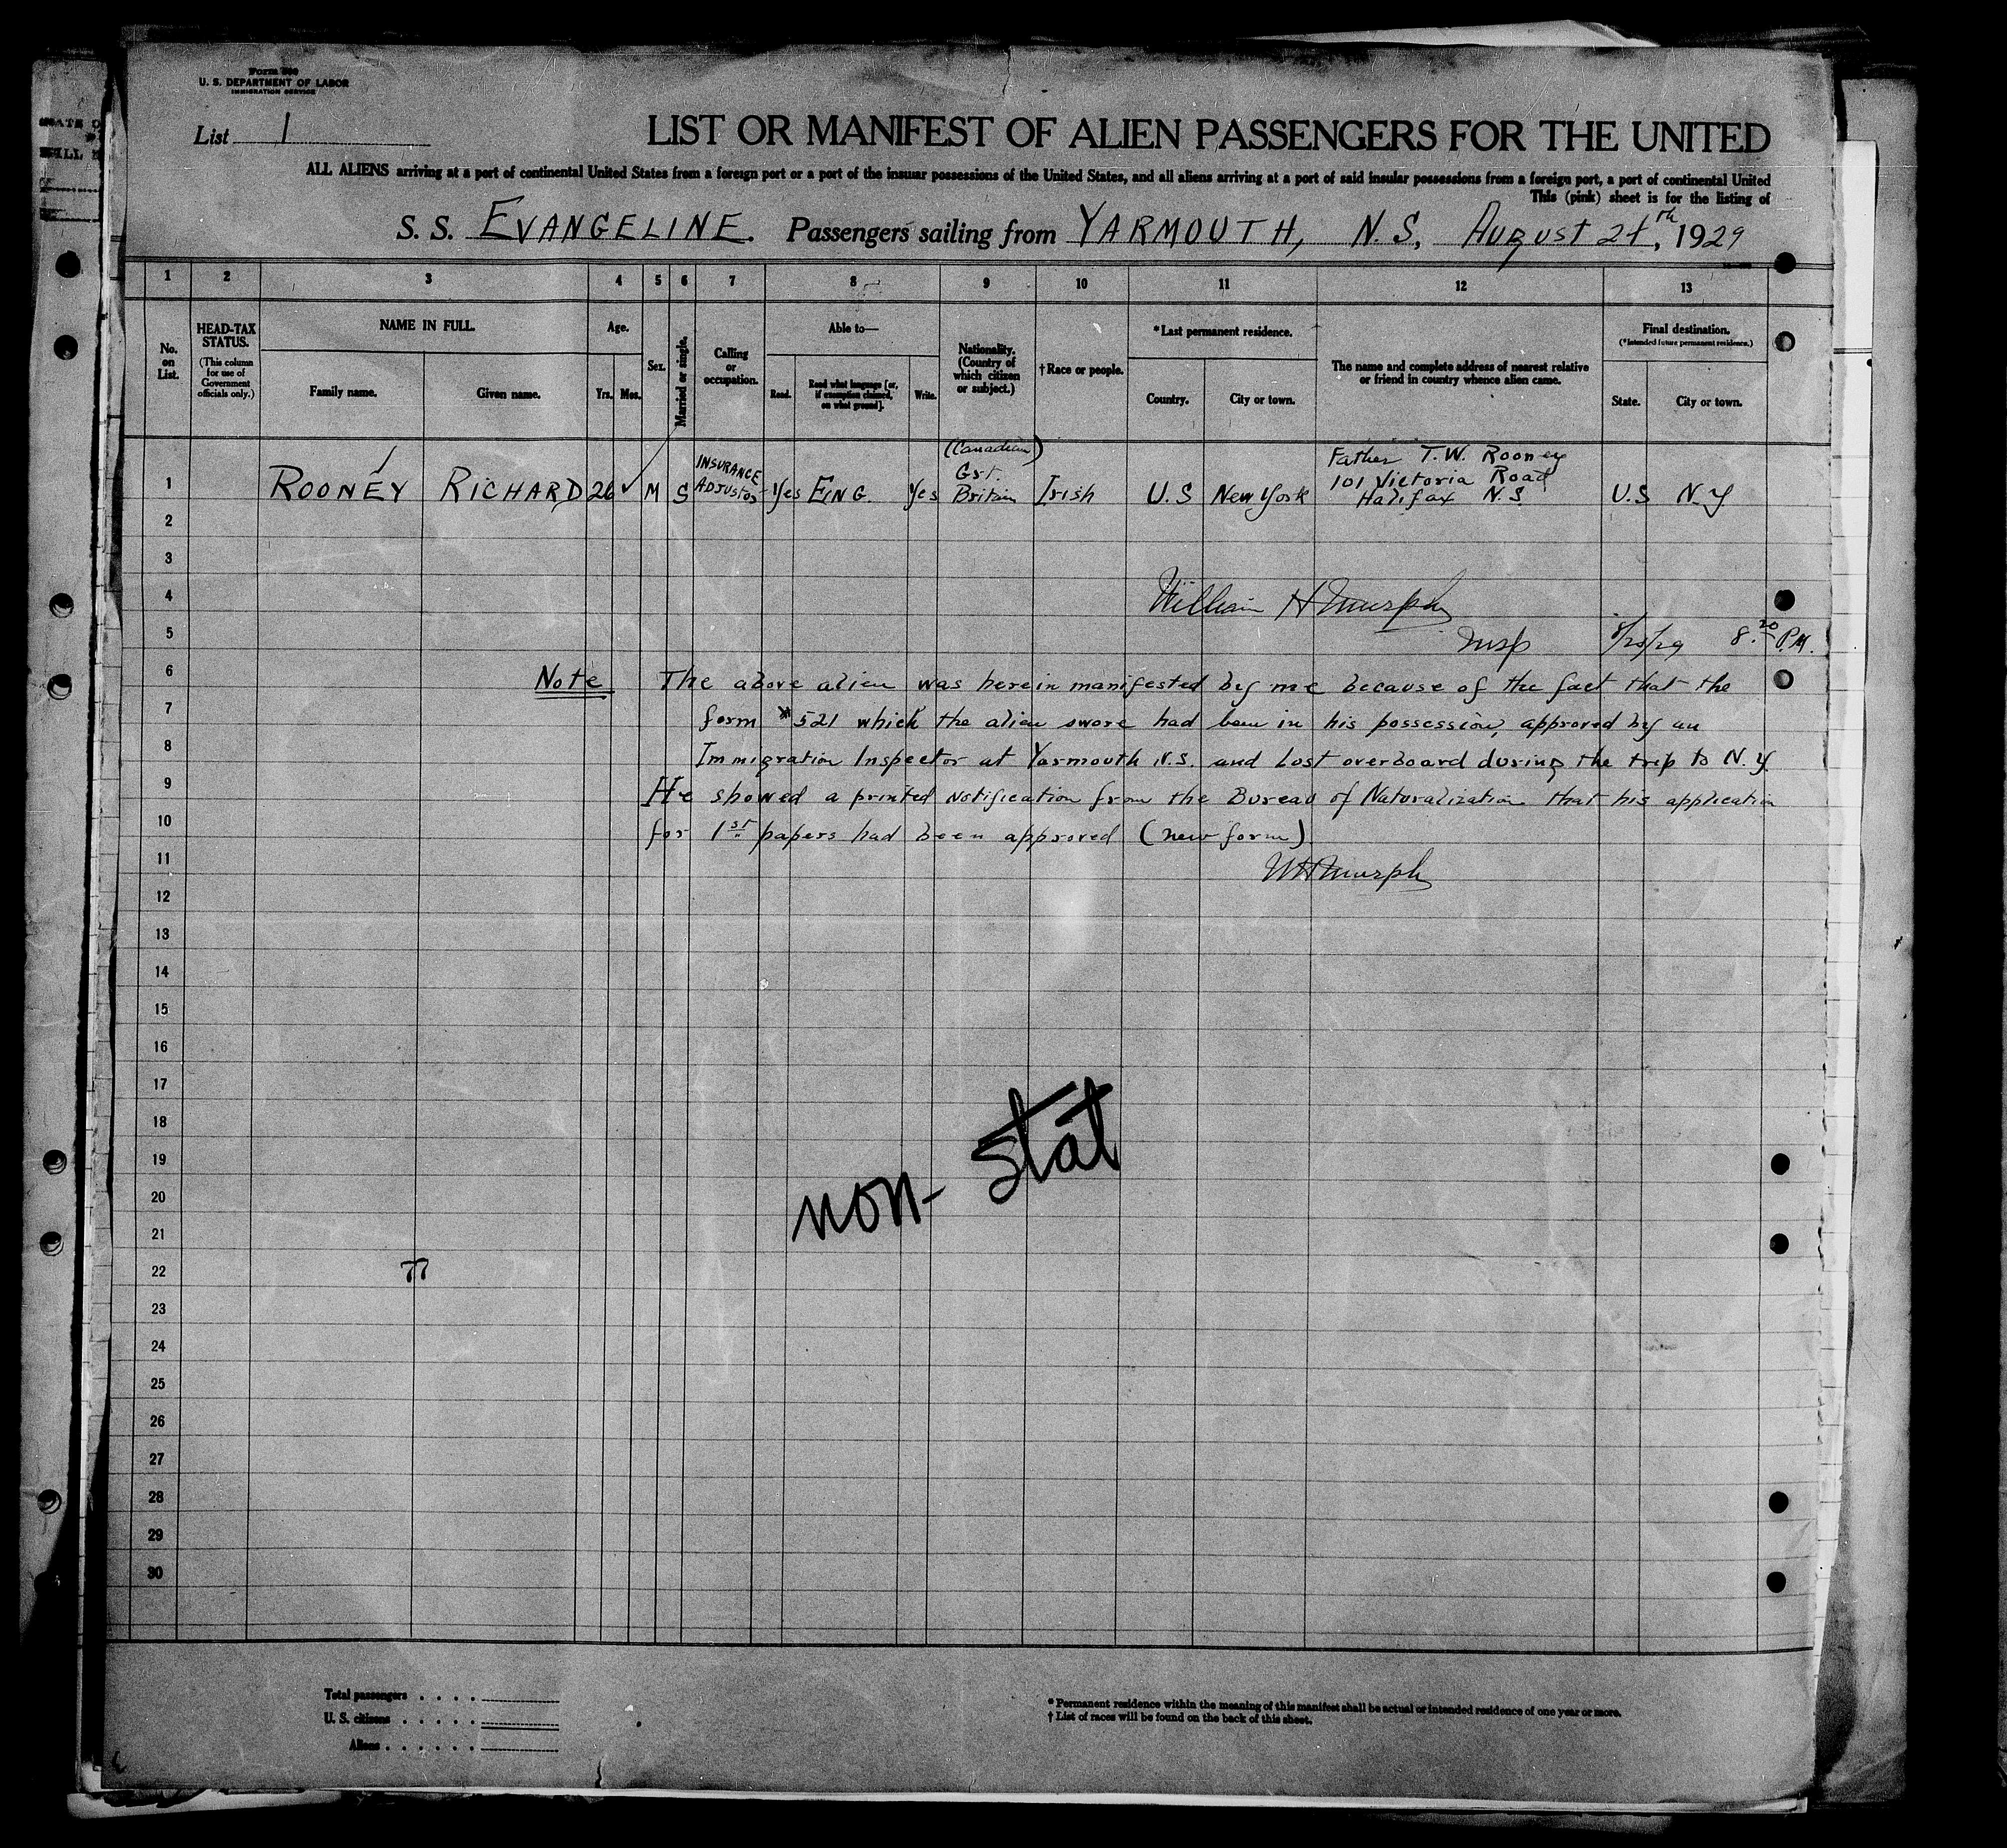 U. S. DEPARTMENT OF LABOR
IMMIGRATION SERVICE
List 1
LIST OR MANIFEST OF ALIEN PASSENGERS FOR THE UNITED
ALL ALIENS arriving at a port of continental United States from a foreign port or a port of the insular possessions of the United States, and all aliens arriving at a port of said insular possessions from a foreign port, a port of continental United
This (pink) sheet is for the listing of
S. S. EVANGELINE. Passengers sailing from YARMOUTH, N.S, AUGUST 2 th, 1929
1 2 3 4 5 6 7 8 9 10 11 12 13
No. on List.
HEAD-TAX STATUS.
(This column for use of Government officials only.)
NAME IN FULL.
Family name. Given name.
Age.
Yrs. Mos.
Sex.
Married or single.
Calling or occupation.
Able to—
Read. Read what language [or, if exemption claimed, on what ground]. Write.
Nationality. (Country of which citizen or subject.)
†Race or people.
*Last permanent residence.
Country. City or town.
The name and complete address of nearest relative or friend in country whence alien came.
Final destination.
(*Intended future permanent residence.)
State. City or town.
1 ROONEY RICHARD 26 M S INSURANCE ADJUSTOR Yes ENG. Yes (Canadian) Grt. Britain Irish U.S New York Father T.W. Rooney 101 Victoria Road Halifax N.S. U.S N.Y.
2
3
4 William H Murphy
5 Insp 8/25/29 8.20 P.M.
6 Note The above alien was herein manifested by me because of the fact that the
7 form #521 which the alien swore had been in his possession, approved by an
8 Immigration Inspector at Yarmouth N.S. and lost overboard during the trip to N.Y
9 He showed a printed notification from the Bureau of Naturalization that his application
10 for 1st papers had been approved (new form)
11 WHMurphy
12
13
14
15
16
17
18
19
20
21
22
23
24
25
26
27
28
29
30
non-stat
77
Total passengers . . . .
U. S. citizens . . . . .
Aliens . . . . . .
* Permanent residence within the meaning of this manifest shall be actual or intended residence of one year or more.
† List of races will be found on the back of this sheet.